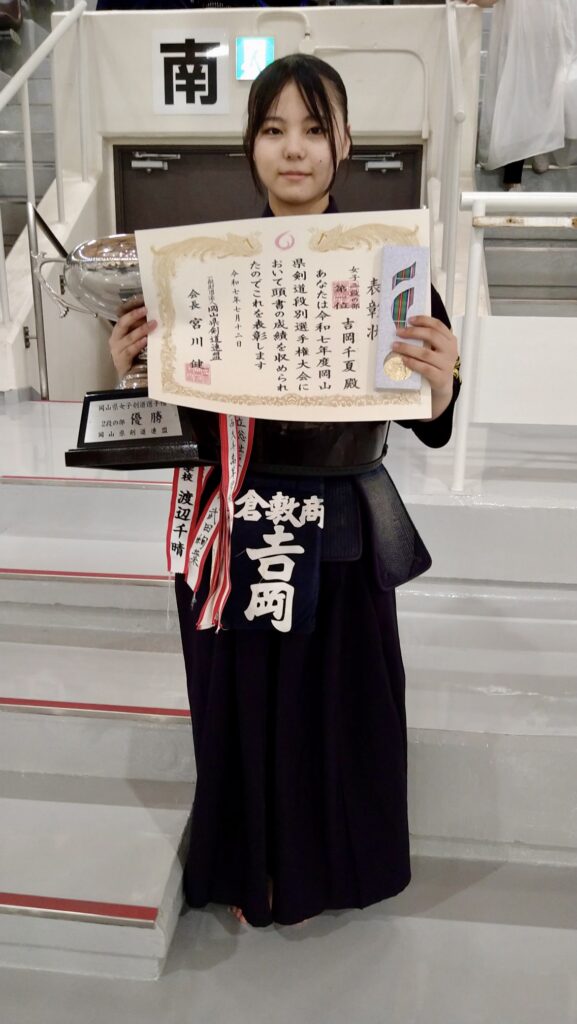 南
表彰状
女子二段の部
第一位
吉岡千夏 殿
あなたは令和七年度岡山
県剣道段別選手権大会に
おいて頭書の成績を収められ
たのでこれを表彰します
令和七年七月十三日
岡山県剣道連盟
会長 宮川 健
岡山県女子剣道選手権
2段の部 優勝
岡山県剣道連盟
渡辺千晴
倉敷商
吉岡